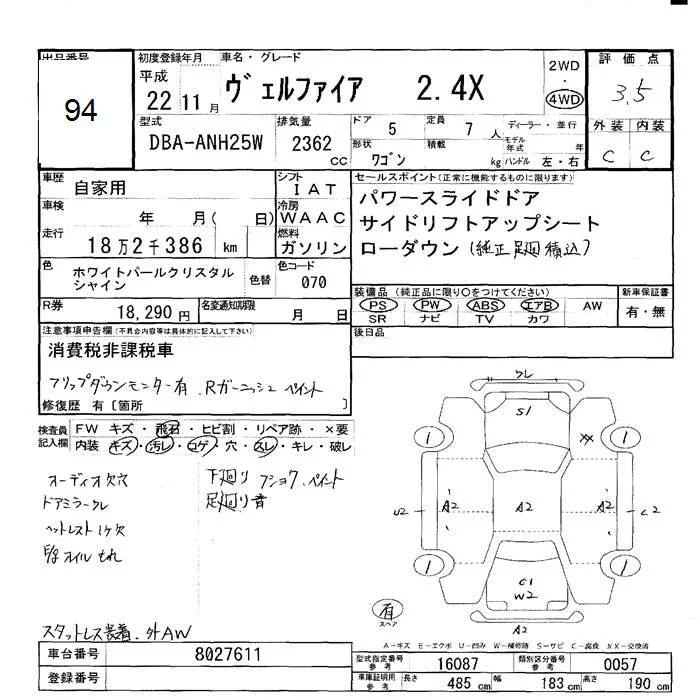 出品番号 初度登録年月 車名・グレード 2WD・4WD 評価点
94 平成 22 11月 ヴェルファイア 2.4X 3.5
型式 DBA-ANH25W 排気量 2362 cc ドア 5 定員 7 人 ディーラー・並行 外装 内装
形状 ワゴン 積載 kg モデル年式 年 ハンドル 左・右 C C
車歴 自家用 シフト IAT セールスポイント(正常に機能するものに限ります)
車検 年 月( 日) 冷房 WAAC パワースライドドア
サイドリフトアップシート
走行 18万2千386 km 燃料 ガソリン ローダウン(純正足廻積込)
色 ホワイトパールクリスタルシャイン 色替 色コード 070
装備品 (純正品に限り○をつけてください) 新車保証書
PS PW ABS エアB AW 有・無
SR ナビ TV カワ
R券 18,290円 名変通知期限 月 日
後日品
注意事項申告欄(不具合内容等は具体的に記入して下さい)
消費税非課税車
フリップダウンモニター有 Rガーニッシュ ペイント
修復歴 有[箇所 ]
検査員記入欄 FW キズ・飛石・ヒビ割・リペア跡・×要
内装 キズ・汚レ・コゲ・穴・スレ・キレ・破レ
オーディオ欠穴 下廻り フショク、ペイント
ドアミラークレ 足廻り 青
ヘットレスト1ケ欠
オイルもれ
スタットレス装着、外AW
クレ
S1
1 XX 1
U2 A2 A2 A2 C2
1 C1 1
W2
有 スペア
A2
A-キズ E-エクボ U-凹み W-補修跡 S-サビ C-腐食 XX-交換済
車台番号 8027611
登録番号
型式指定番号 参考 16087 類別区分番号 参考 0057
車庫証明用 参考 長さ 485cm 幅 183cm 高さ 190cm